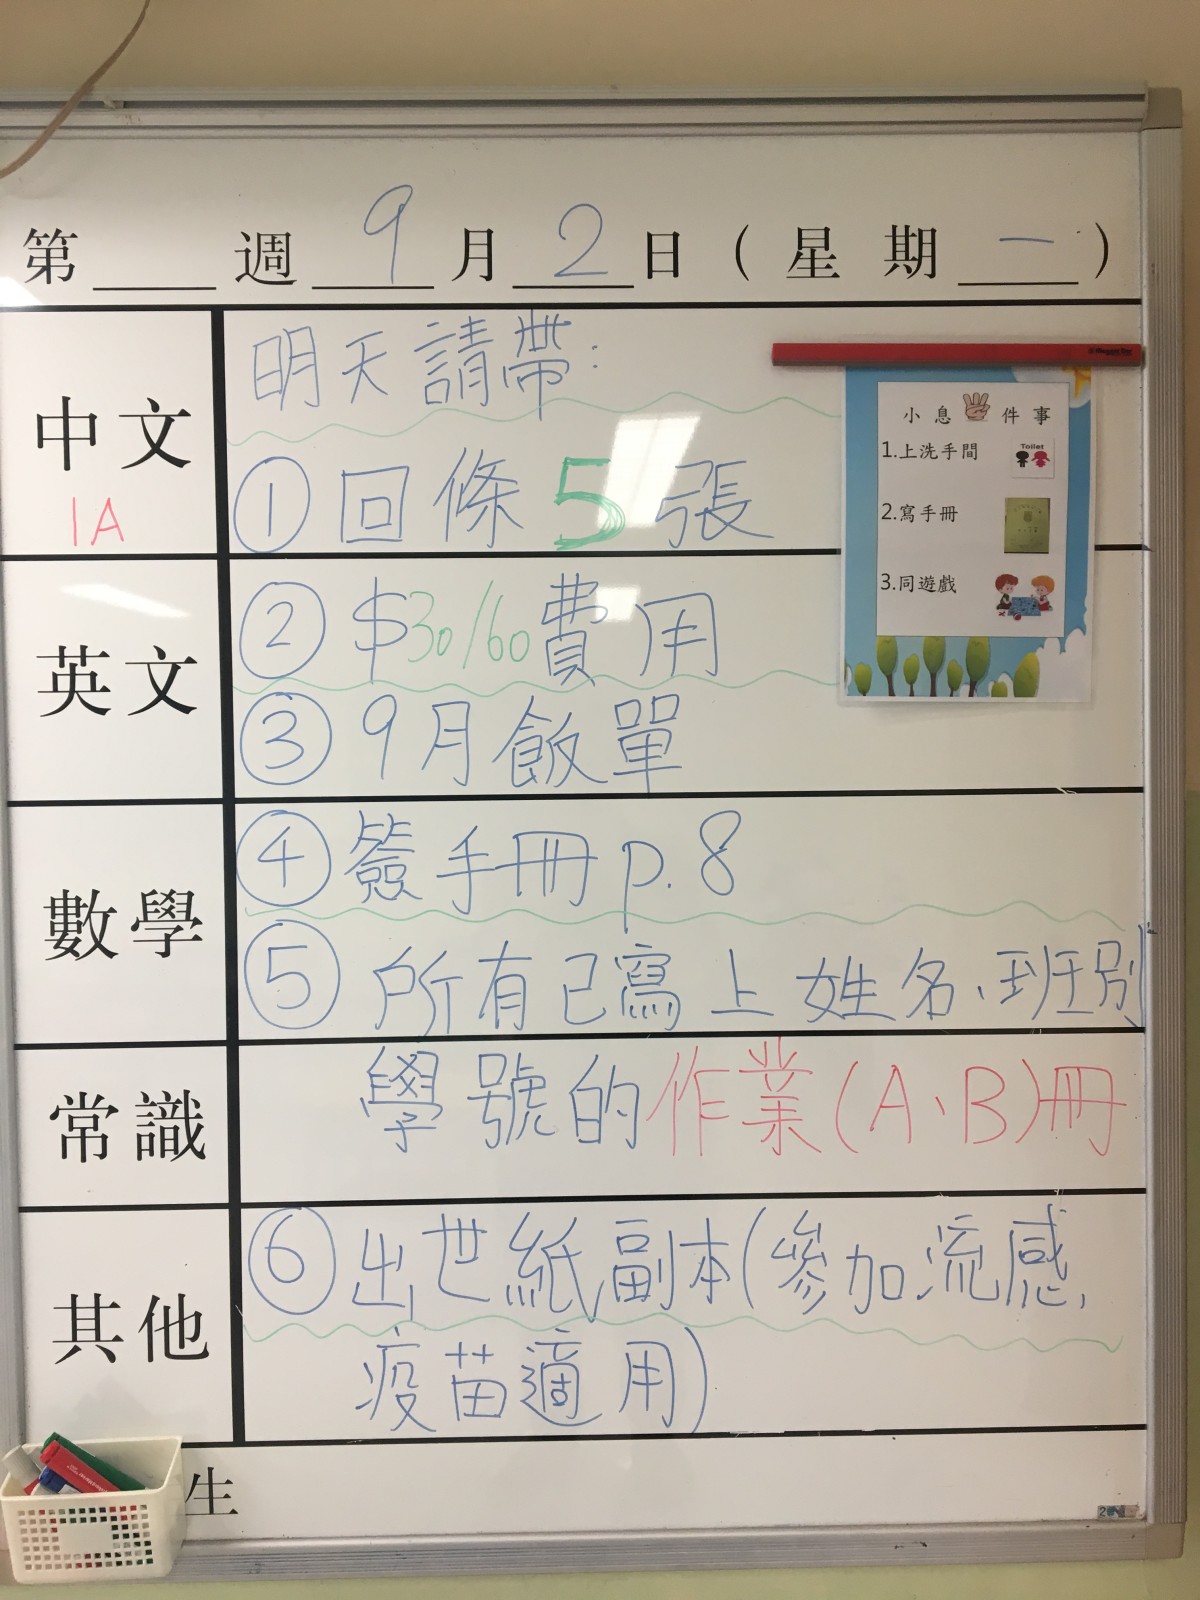 第 週 9 月 2 日 ( 星期 一 )
中文
1A
明天請帶:
① 回條 5 張
小息 件事
1.上洗手間
Toilet
2.寫手冊
3.同遊戲
英文
② $30/60費用
③ 9月飯單
數學
④ 簽手冊 p.8
⑤ 所有已寫上姓名、班別
常識
學號的作業(A、B)冊
其他
⑥ 出世紙副本(參加流感
疫苗適用)
生